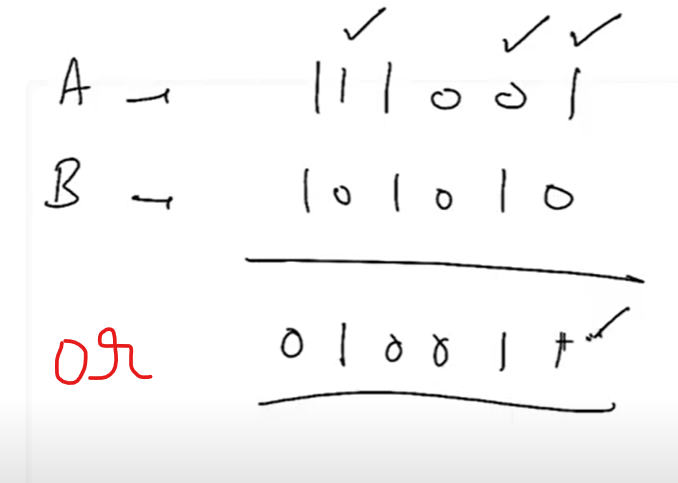 A → 111001
B → 101010
or 010011